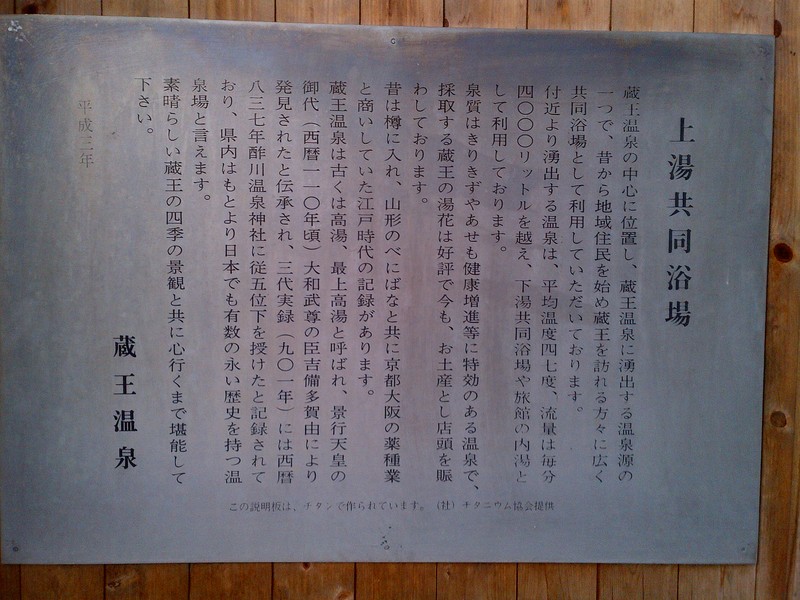 上湯共同浴場
蔵王温泉の中心に位置し、蔵王温泉に湧出する温泉源の
一つで、昔から地域住民を始め蔵王を訪れる方々に広く
共同浴場として利用していただいております。
付近より湧出する温泉は、平均温度四七度、流量は毎分
四〇〇〇リットルを越え、下湯共同浴場や旅館の内湯と
して利用しております。
泉質はきりきずやあせも健康増進等に特効のある温泉で、
採取する蔵王の湯花は好評で今も、お土産とし店頭を賑
わしております。
昔は樽に入れ、山形のべにばなと共に京都大阪の薬種業
と商いしていた江戸時代の記録があります。
蔵王温泉は古くは高湯、最上高湯と呼ばれ、景行天皇の
御代（西暦一一〇年頃）大和武尊の臣吉備多賀由により
発見されたと伝承され、三代実録（九〇一年）には西暦
八三七年酢川温泉神社に従五位下を授けたと記録されて
おり、県内はもとより日本でも有数の永い歴史を持つ温
泉場と言えます。
素晴らしい蔵王の四季の景観と共に心行くまで堪能して
下さい。
平成三年
蔵王温泉
この説明板は、チタンで作られています。（社）チタニウム協会提供